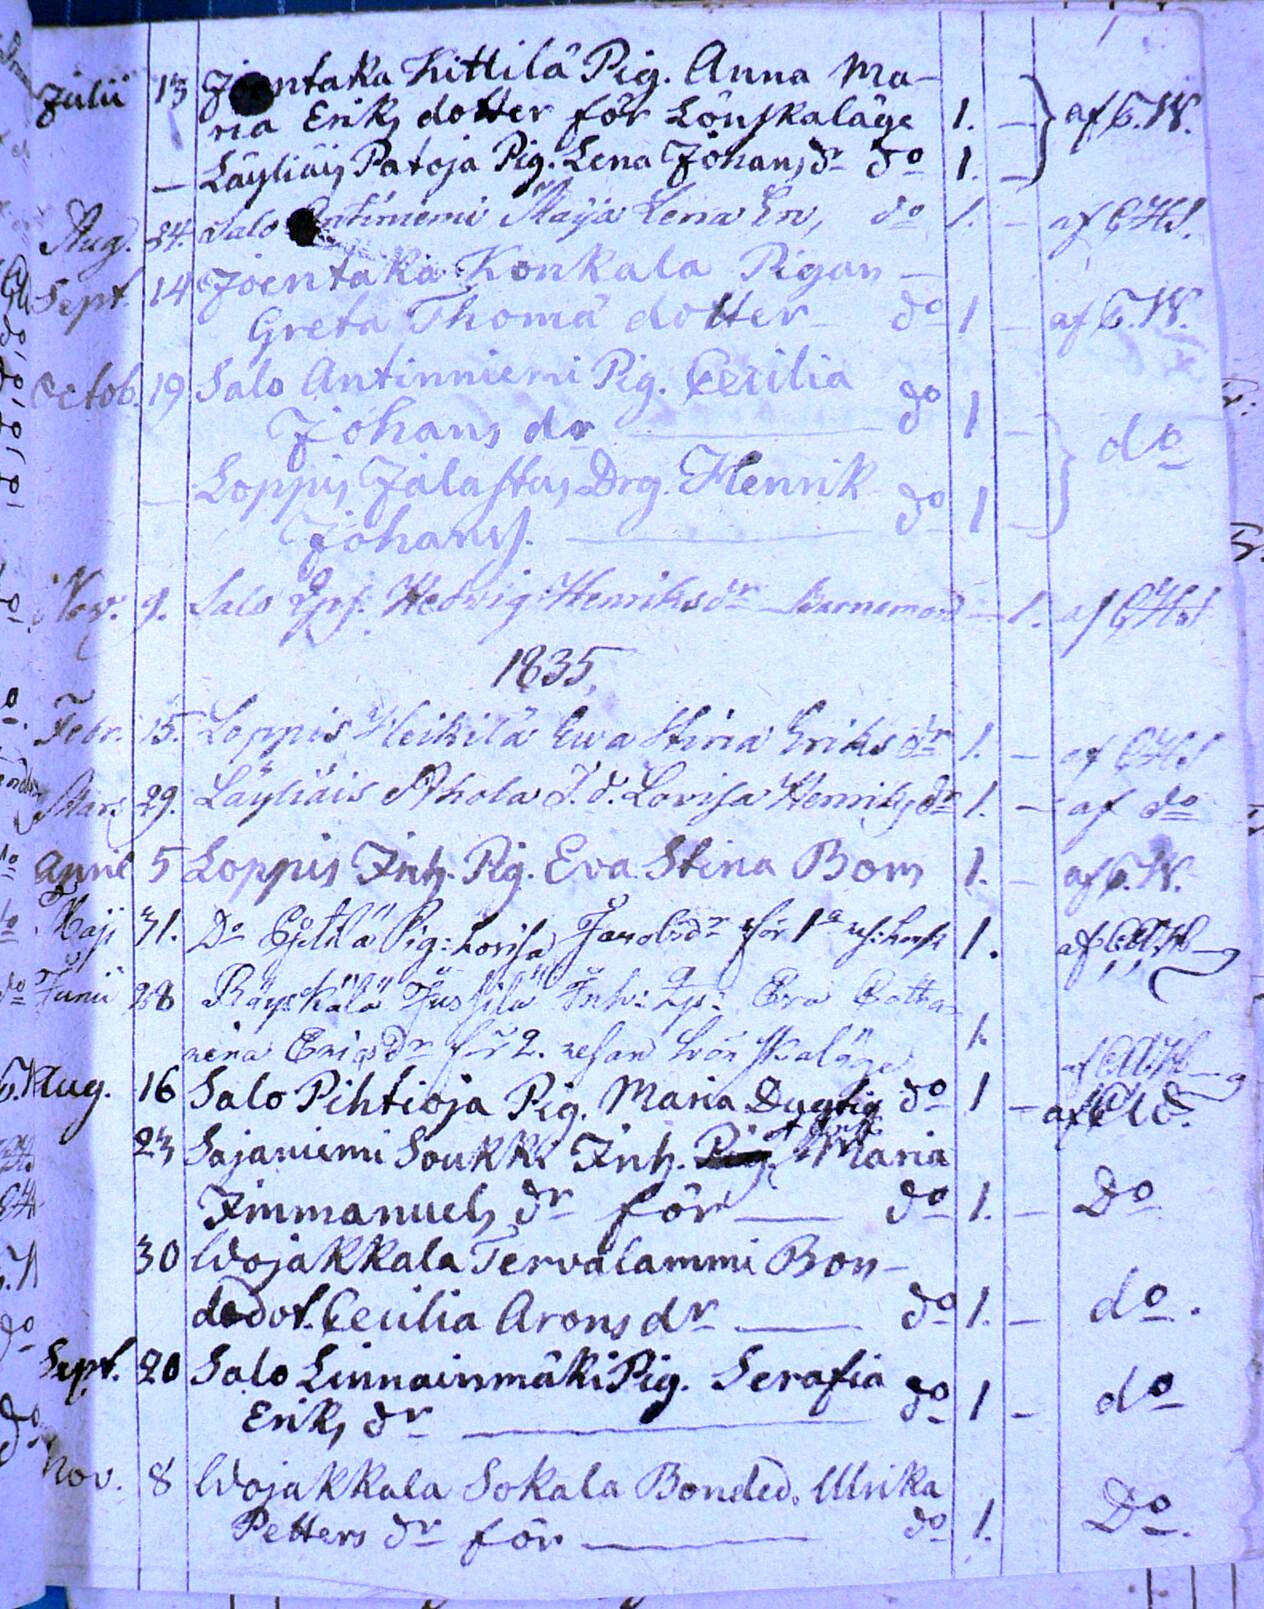 Julii 13 Joentaka Kittilä Pig. Anna Ma-
ria Eriks dotter för Lönskaläge 1. — af C.W.
— Läyliäis Patoja Pig. Lena Johans dr do 1. —
Aug. 24. Salo Antinniemi Maja Lena do 1. — af
Sept. 14 Joentaka Konkala Pigan —
Greta Thomä dotter — do 1 — af C.W.
Octob. 19 Salo Antinniemi Pig. Cecilia
Johans dr — do 1 — do
— Loppis Jalastus Drg. Henrik
Johans. — do 1 —
Nov. 9. Salo Hedvig Henriksdr — Barnamord — 1. af
1835.
Febr. 15. Loppis Heikilä Ewa Stina Eriks dr 1. — af
Mars 29. Läyliäis Ahola J. d. Lovisa Henriks dr 1. — af do
April 5 Loppis Inh. Pig. Eva Stina Bom 1. — af C.W.
Maji 31. Do Pig: Lovisa Jacobsdr för 1a 1. af
Junii 28 Räyskälä Jussila Inh: Eva Catha-
rina Ericsdr för 2. resan Lönskaläge 1. af
Aug. 16 Salo Pihtioja Pig. Maria Dugtig do 1 — af
23 Sajaniemi Soukki Inh. Maria
Immanuels dr för — do 1. — Do
30 Wojakkala Tervalammi Bon-
dedot. Cecilia Arons dr — do 1. — do.
Sept. 20 Salo Linnainmäki Pig. Serafia
Eriks dr — do 1 — do
Nov. 8 Wojakkala Sokala Bonded. Ulrika
Petters dr för — do 1. Do.